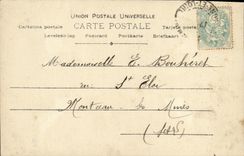 UNION POSTALE UNIVERSELLE
CARTE POSTALE
Cartolina postale
Tarjeta postal
Levelezö-lap Postcard Postkarte Briefkaart
Mademoiselle E. Bouhéret
rue St Eloi
Montceau les Mines
(S&L)